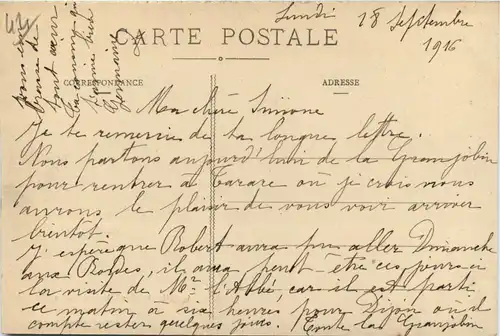 Lundi 18 Septembre
1916
CARTE POSTALE
CORRESPONDANCE
ADRESSE
Ma chère Simone
Je te remercie de ta longue lettre.
Nous partons aujourd'huir de la Granjobin
pour rentrer à Tarare où je crois nous
aurons le plaisir de vous voir arriver
bientôt.
J'espère que Robert aura pu aller Dimanche
aux Bordes, il aura peut-être ces jours-ci
la visite de Mr l'Abbé, car il est parti
ce matin à six heures pour Dijon où il
compte rester quelques jours. Toute la Granjobin
tout cœur
Ta cousine qui
t'aime
Germaine